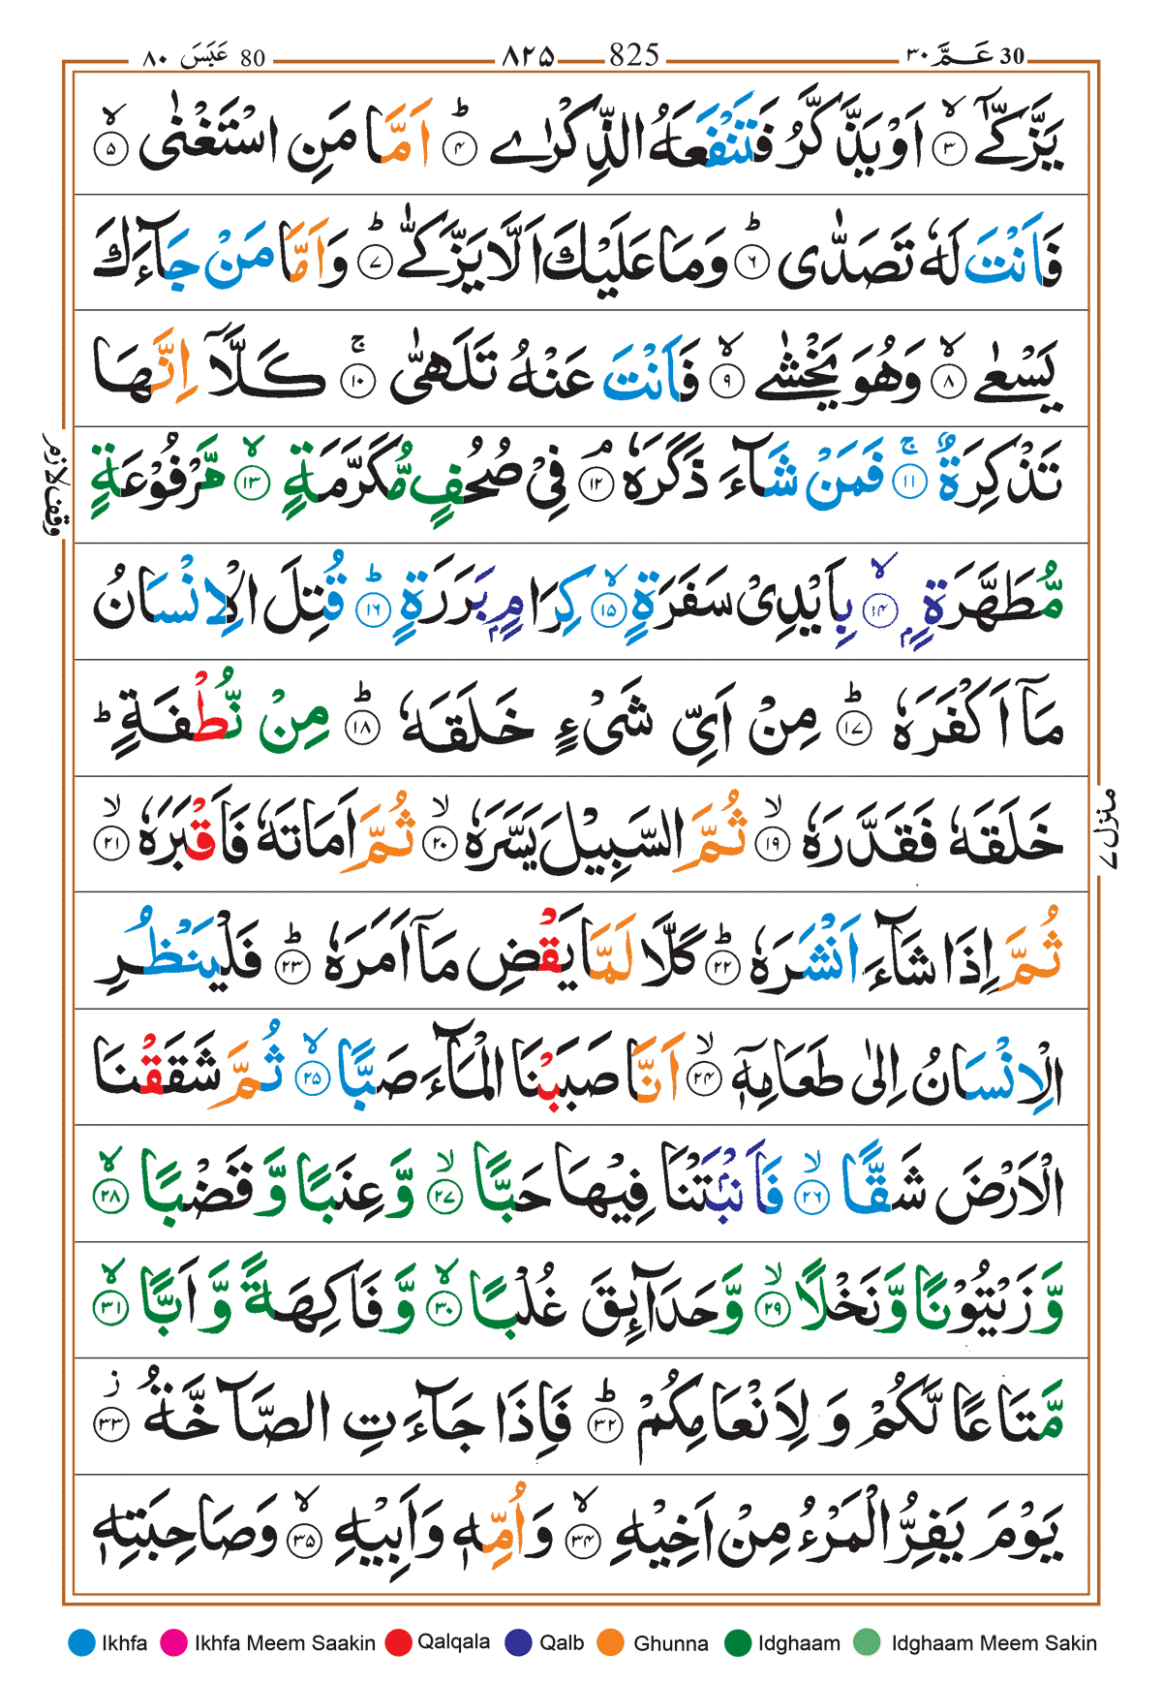 30 عَـمَّ ٣٠ 825 ٨٢٥ 80 عَبَسَ ٨٠
يَزَّكّٰٓى ۙ‏﴿۳﴾ اَوۡ يَذَّكَّرُ فَتَنۡفَعَهُ الذِّكۡرٰى ؕ‏﴿۴﴾ اَمَّا مَنِ اسۡتَغۡنٰىۙ‏﴿۵﴾
فَاَنۡتَ لَهٗ تَصَدّٰىؕ‏﴿۶﴾ وَمَا عَلَيۡكَ اَلَّا يَزَّكّٰىؕ‏﴿۷﴾ وَاَمَّا مَنۡ جَآءَكَ
يَسۡعٰىۙ‏﴿۸﴾ وَهُوَ يَخۡشٰىۙ‏﴿۹﴾ فَاَنۡتَ عَنۡهُ تَلَهّٰى‌ۚ‏﴿۱۰﴾ كَلَّاۤ اِنَّهَا
تَذۡكِرَةٌ ۚ‏﴿۱۱﴾ فَمَنۡ شَآءَ ذَكَرَهٗ‌ۘ‏﴿۱۲﴾ فِىۡ صُحُفٍ مُّكَرَّمَةٍۙ‏﴿۱۳﴾ مَّرۡفُوۡعَةٍ
وقف لازم
مُّطَهَّرَةٍ ۭۙ‏﴿۱۴﴾ بِاَيۡدِىۡ سَفَرَةٍۙ‏﴿۱۵﴾ كِرَامٍۭ بَرَرَةٍؕ‏﴿۱۶﴾ قُتِلَ الۡاِنۡسَانُ
مَاۤ اَكۡفَرَهٗؕ‏﴿۱۷﴾ مِنۡ اَىِّ شَىۡءٍ خَلَقَهٗؕ‏﴿۱۸﴾ مِنۡ نُّطۡفَةٍؕ
خَلَقَهٗ فَقَدَّرَهٗۙ‏﴿۱۹﴾ ثُمَّ السَّبِيۡلَ يَسَّرَهٗۙ‏﴿۲۰﴾ ثُمَّ اَمَاتَهٗ فَاَقۡبَرَهٗۙ‏﴿۲۱﴾
منزل ٧
ثُمَّ اِذَا شَآءَ اَنۡشَرَهٗؕ‏﴿۲۲﴾ كَلَّا لَمَّا يَقۡضِ مَاۤ اَمَرَهٗؕ‏﴿۲۳﴾ فَلۡيَنۡظُرِ
الۡاِنۡسَانُ اِلٰى طَعَامِهٖۤۙ‏﴿۲۴﴾ اَنَّا صَبَبۡنَا الۡمَآءَ صَبًّاۙ‏﴿۲۵﴾ ثُمَّ شَقَقۡنَا
الۡاَرۡضَ شَقًّاۙ‏﴿۲۶﴾ فَاَنۡۢبَتۡنَا فِيۡهَا حَبًّاۙ‏﴿۲۷﴾ وَّ عِنَبًا وَّقَضۡبًاۙ‏﴿۲۸﴾
وَّزَيۡتُوۡنًا وَّنَخۡلًاۙ‏﴿۲۹﴾ وَّحَدَآٮِٕقَ غُلۡبًاۙ‏﴿۳۰﴾ وَّفَاكِهَةً وَّاَبًّاۙ‏﴿۳۱﴾
مَّتَاعًا لَّكُمۡ وَلِاَنۡعَامِكُمۡؕ‏﴿۳۲﴾ فَاِذَا جَآءَتِ الصَّآخَّةُ ز‏﴿۳۳﴾
يَوۡمَ يَفِرُّ الۡمَرۡءُ مِنۡ اَخِيۡهِۙ‏﴿۳۴﴾ وَاُمِّهٖ وَاَبِيۡهِۙ‏﴿۳۵﴾ وَصَاحِبَتِهٖ
Ikhfa Ikhfa Meem Saakin Qalqala Qalb Ghunna Idghaam Idghaam Meem Sakin